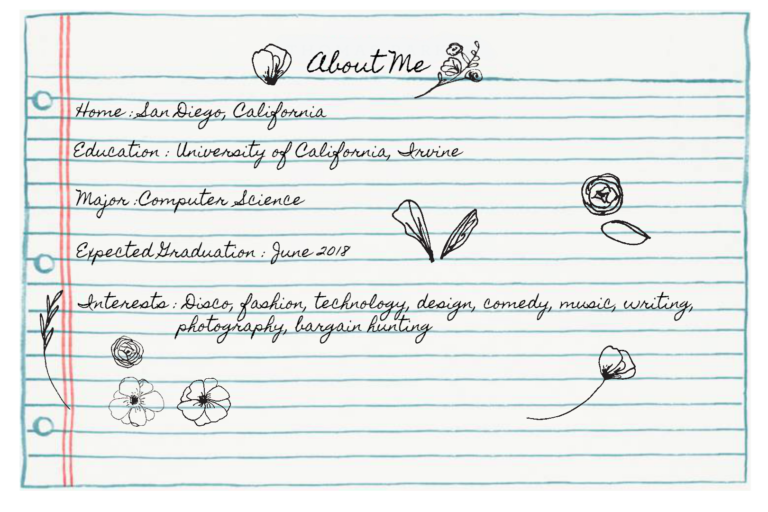 About Me
Home : San Diego, California
Education : University of California, Irvine
Major : Computer Science
Expected Graduation : June 2018
Interests : Disco, fashion, technology, design, comedy, music, writing,
photography, bargain hunting